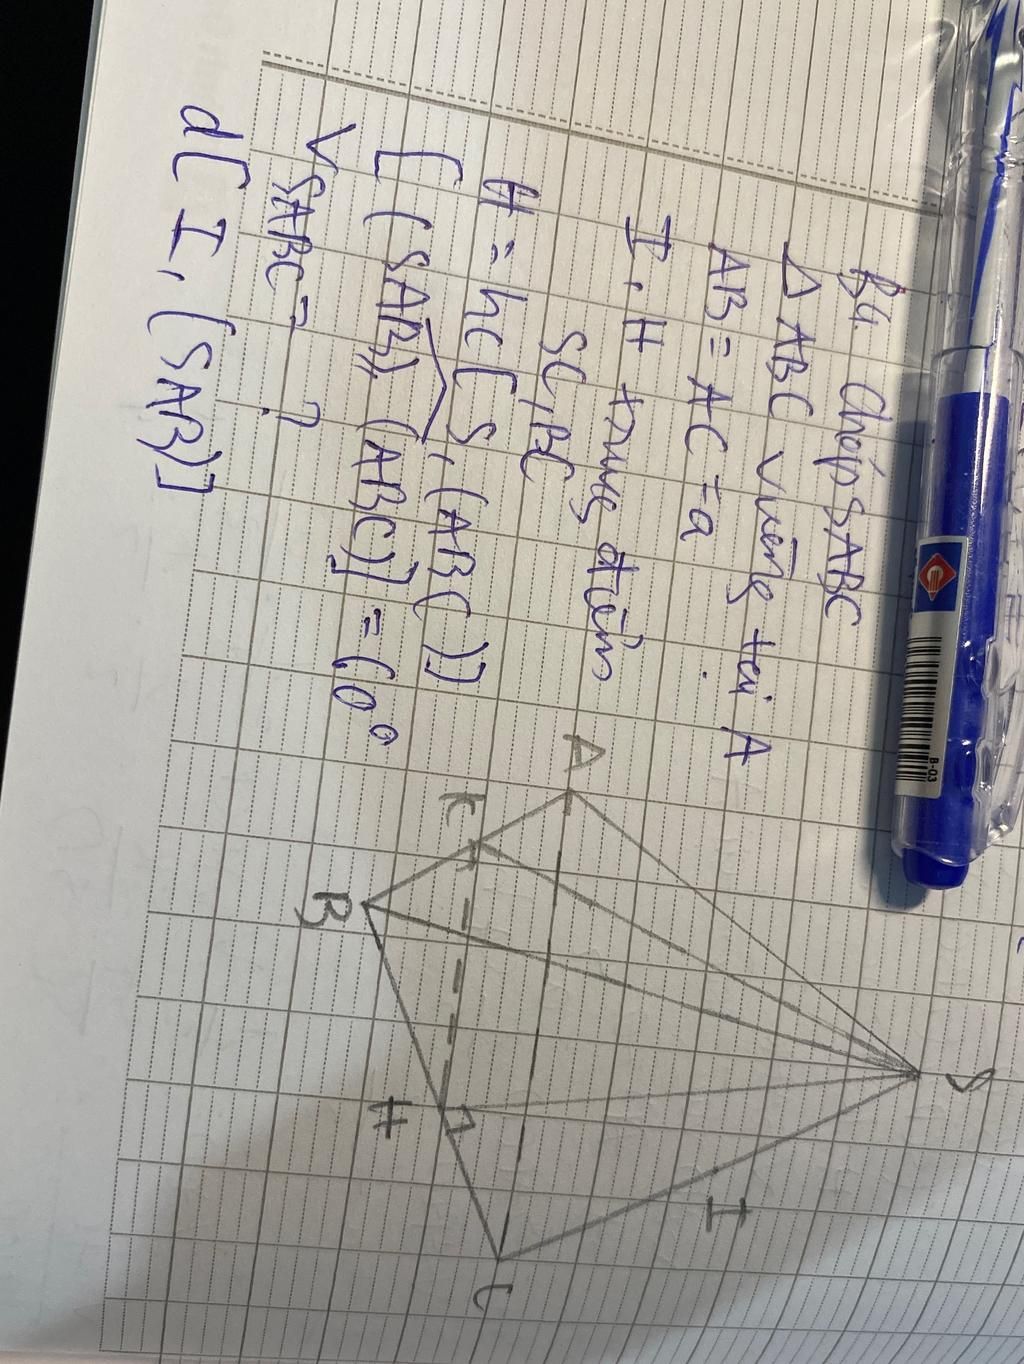 B4 Chóp SABC
Δ ABC vuông tại A
AB = AC = a
I, H trung điểm
SC, BC
H = hc[S, (ABC)]
[(SAB), (ABC)] = 60°
VSABC = ?
d[I, (SAB)]
A
K
B
H
C
I
S
B-03